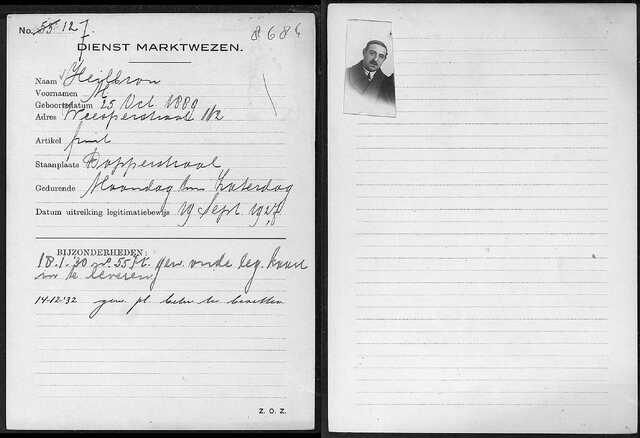 No. 55 127
8686
DIENST MARKTWEZEN.
Naam Heilbron
Voornamen M
Geboortedatum 25 Oct 1889
Adres Weesperstraat 112
Artikel fruit
Staanplaats Dapperstraat
Gedurende Maandag t/m Zaterdag
Datum uitreiking legitimatiebewijs 19 Sept 1927
BIJZONDERHEDEN:
18.1.'30 gew. oude leg. kaart
in te leveren
14-12-'32 gew. pl. beter te bezetten
Z. O. Z.